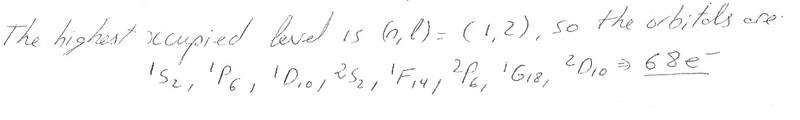 The highest occupied level is (n,l) = (1,2), so the orbitals are
¹S₂, ¹P₆, ¹D₁₀, ²S₂, ¹F₁₄, ²P₆, ¹G₁₈, ²D₁₀ ⇒ 68e⁻